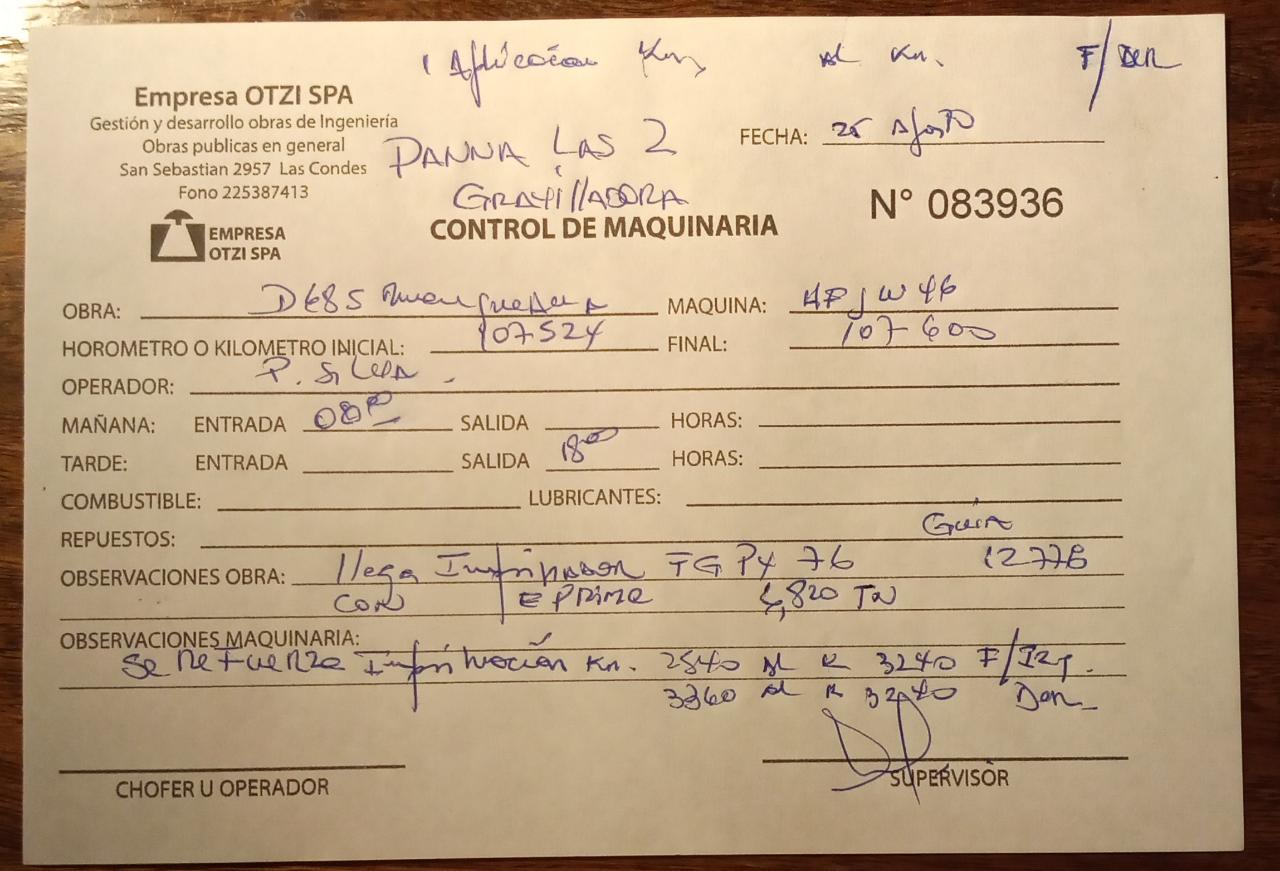 Aplicación Km, al Km. F/DER
Empresa OTZI SPA
Gestión y desarrollo obras de Ingeniería
Obras publicas en general
San Sebastian 2957 Las Condes
Fono 225387413
EMPRESA
OTZI SPA
PANNA LAS 2
GRAVILLADORA
CONTROL DE MAQUINARIA
FECHA: 25 Agosto
N° 083936
OBRA: D685 MAQUINA: HFJW46
HOROMETRO O KILOMETRO INICIAL: 107524 FINAL: 107600
OPERADOR: P. Silva.
MAÑANA: ENTRADA 08:00 SALIDA HORAS:
TARDE: ENTRADA SALIDA 18:00 HORAS:
COMBUSTIBLE: LUBRICANTES:
REPUESTOS: Guia
OBSERVACIONES OBRA: llega Imprimador FG PY 76 12778
CON E PRIME 6,820 TN
OBSERVACIONES MAQUINARIA:
Se Refuerza Imprimación Km. 2540 al K 3240 F/Izq.
3360 al K 3240 Der
CHOFER U OPERADOR SUPERVISOR